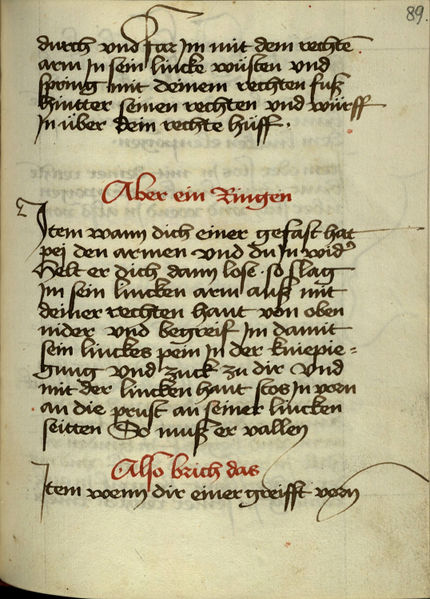 89.
durch vnd far Im mit dem rechte
arm In sein lincke wüsten vnd
spring mit deinem rechten fuß
hintter seinen rechten vnd würff
In über dein rechte hüff.
Aber ein Ringen
Item wann dich einer gefast hat
pei den armen vnd du In wid
Helt er dich dann lose. so slag
Im sein lincken arm auß mit
deiner rechten hant von oben
nider vnd begreif Im damit
sein linckes pein In der kniepie=
gung vnd zuck zu dir Vnd
mit der lincken hant stos In vorn
an die prust an seiner lincken
seitten So muß er vallen
Also brich das
Item wenn dir einer greifft vorn